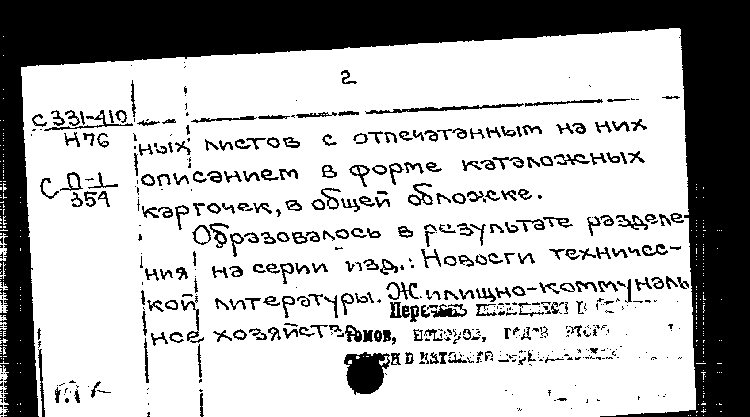 2
С 331-410
Н76
С П-1
354
ных листов с отпечатанным на них
описанием в форме каталожных
карточек, в общей обложке.
Образовалось в результате разделе-
ния на серии изд.: Новости техничес-
кой литературы. Жилищно-коммуналь
ное хозяйство
Перечень имеющихся в
томов, номеров, годов этого
в каталоге